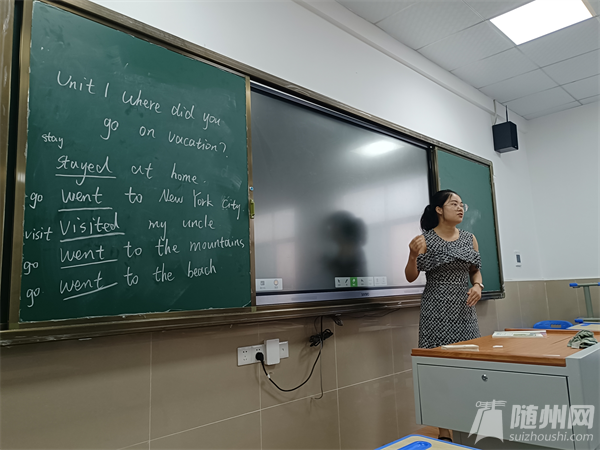 Unit 1 Where did you
go on vacation?
stay
stayed at home.
go went to New York City
visit Visited my uncle
go went to the mountains
go went to the beach
随州网
suizhoushi.com